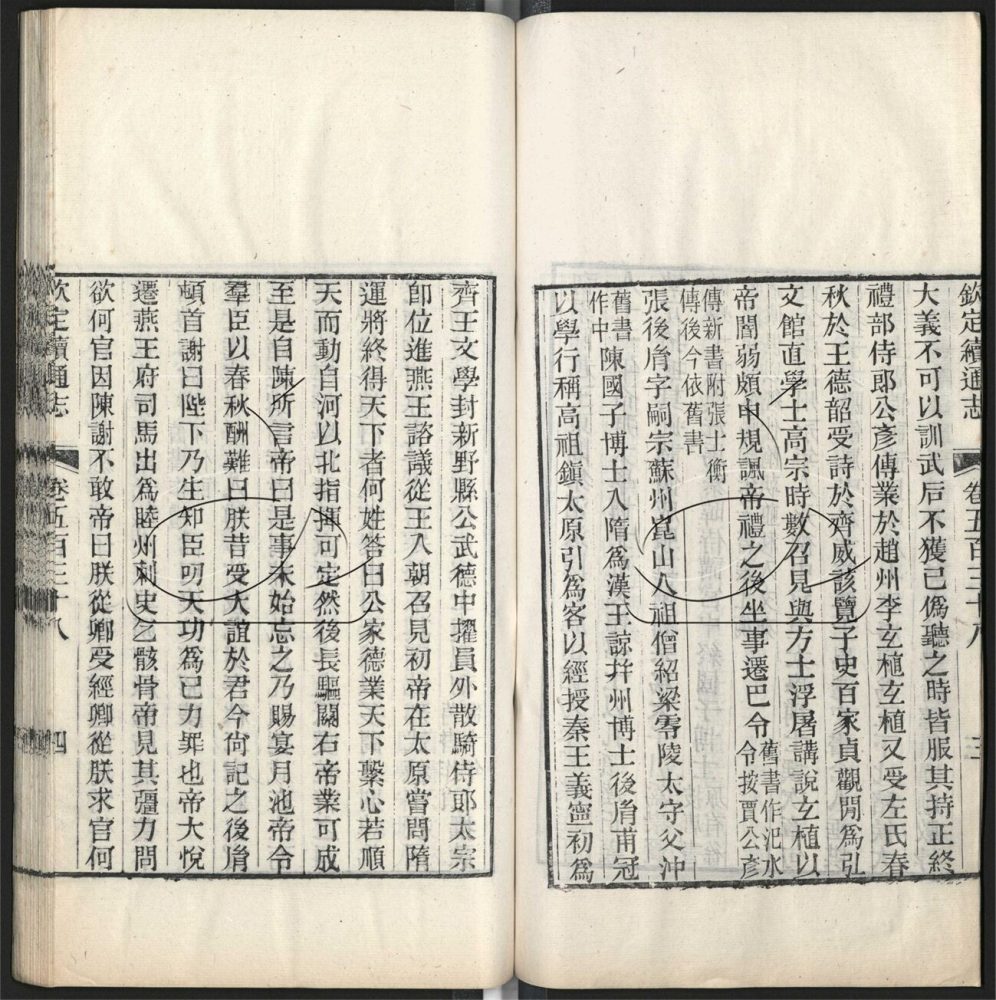 欽定續通志 卷五百三十八 三
大義不可以訓武后不獲已僞聽之時皆服其持正終
禮部侍郎公彥傳業於趙州李玄植玄植又受左氏春
秋於王德韶受詩於齊威該覽子史百家貞觀閒爲弘
文館直學士高宗時數召見與方士浮屠講說玄植以
帝闇弱頗申規諷帝禮之後坐事遷巴令舊書作汜水
令按賈公彥
傳新書附張士衡
傳後今依舊書
張後胤字嗣宗蘇州崑山人祖僧紹梁零陵太守父沖
舊書
作中
陳國子博士入隋爲漢王諒幷州博士後胤甫冠
以學行稱高祖鎭太原引爲客以經授秦王義寧初爲
齊王文學封新野縣公武德中擢員外散騎侍郎太宗
卽位進燕王諮議從王入朝召見初帝在太原嘗問隋
運將終得天下者何姓答曰公家德業天下繫心若順
天而動自河以北指撝可定然後長驅關右帝業可成
至是自陳所言帝曰是事未始忘之乃賜宴月池帝令
羣臣以春秋酬難曰朕昔受大誼於君今尙記之後胤
頓首謝曰陛下乃生知臣叨天功爲已力罪也帝大悅
遷燕王府司馬出爲睦州刺史乞骸骨帝見其彊力問
欲何官因陳謝不敢帝曰朕從卿受經卿從朕求官何
欽定續通志 卷五百三十八 四